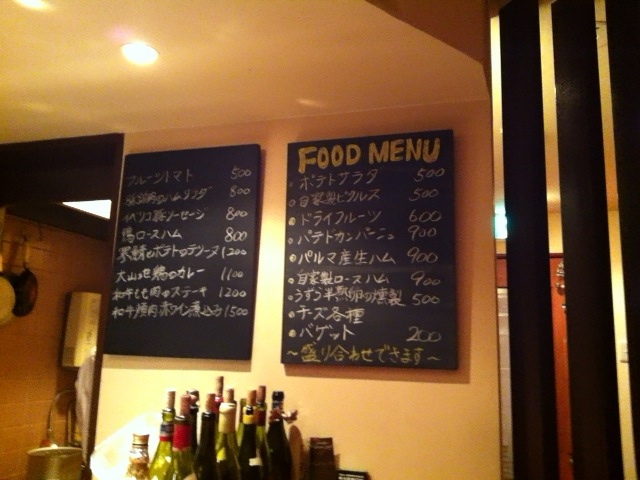 フルーツトマト 500
ハム 800
イベリコ豚ソーセージ 800
鴨ロースハム 800
ポテトのテリーヌ 1200
大山地鶏のカレー 1100
和牛もも肉のステーキ 1200
和牛頬肉赤ワイン煮込み 1500
FOOD MENU
ポテトサラダ 500
自家製ピクルス 500
ドライフルーツ 600
パテドカンパーニュ 900
パルマ産生ハム 900
自家製ロースハム 900
うずら半熟卵の燻製 500
チーズ各種
バゲット 200
〜盛り合わせできます〜